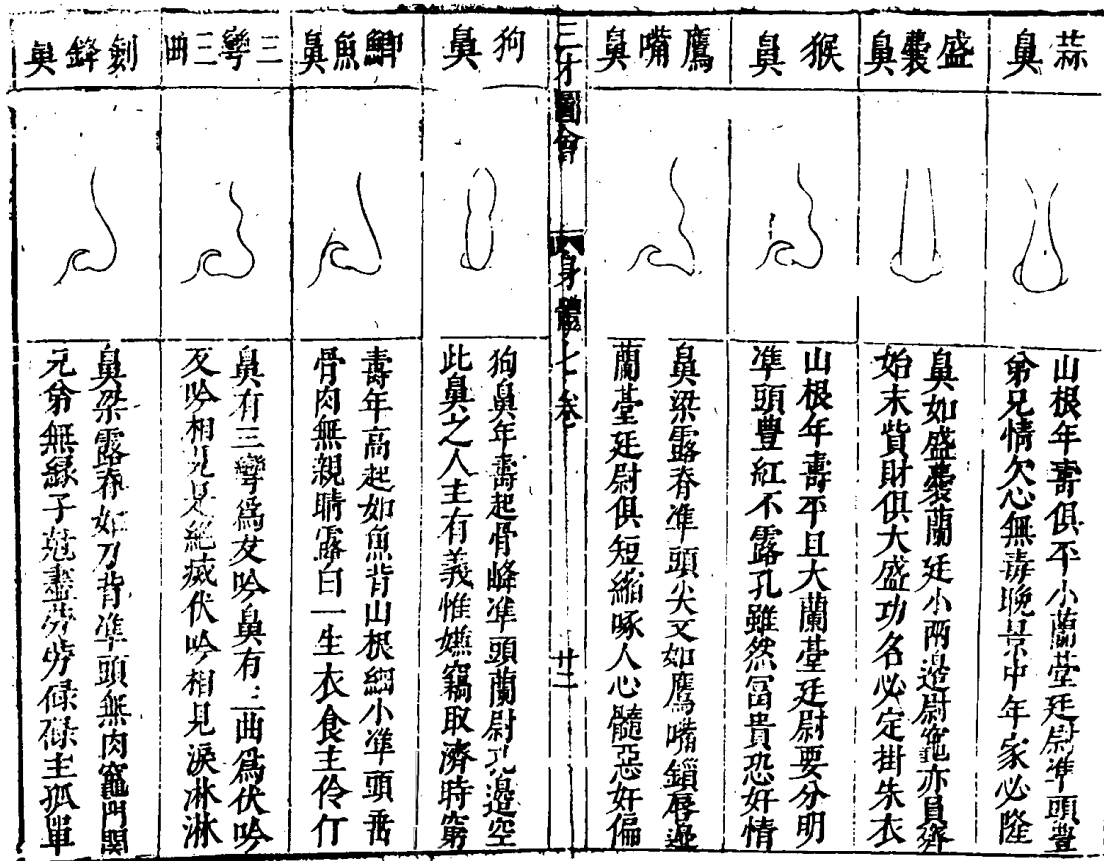 蒜鼻
山根年壽俱平小蘭䑓廷尉凖頭豊
弟兄情欠心無毒晚景中年家必隆
盛囊鼻
鼻如盛囊蘭廷小兩邉尉竈亦員齊
始末貲財俱大盛功名必定掛朱衣
猴鼻
山根年壽平且大蘭䑓廷尉要分明
凖頭豊紅不露孔雖然冨貴恐奸情
鷹嘴鼻
鼻梁露脊凖頭尖又如鷹嘴鎖唇邉
蘭䑓廷尉俱短縮啄人心髓惡奸偏
三才圖會
身體七卷
廿二
狗鼻
狗鼻年壽起骨峰凖頭蘭尉孔邉空
此鼻之人主有義惟嫌竊取濟時窮
鯽魚鼻
壽年高起如魚背山根細小凖頭垂
骨肉無親睛露白一生衣食主伶仃
三彎三曲
鼻有三彎爲反吟鼻有三曲爲伏吟
反吟相見是絶滅伏吟相見淚淋淋
劍鋒鼻
鼻梁露脊如刀背凖頭無肉竈門関
兄弟無緣子尅盡劳劳碌碌主孤單